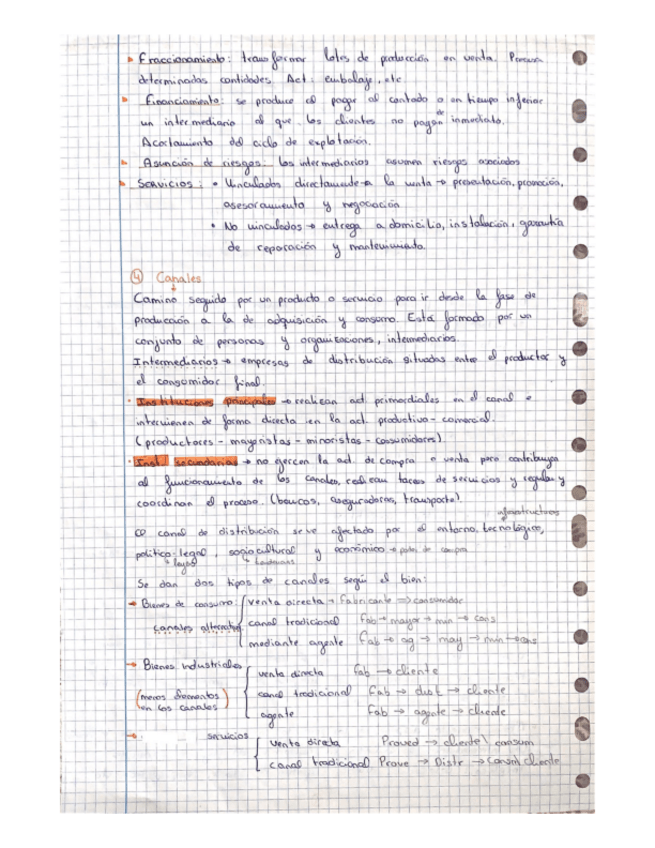 ▸ Fraccionamiento: transformar lotes de producción en venta. 
determinadas cantidades Act: embalaje, etc
▸ Financiamiento: se produce al pagar al contado o en tiempo inferior
un intermediario al que los clientes no pagan de inmediato.
Acortamiento del ciclo de explotación.
▸ Asunción de riesgos: los intermediarios asumen riesgos asociados
▸ SERVICIOS: • Vinculados directamente a la venta → presentación, promoción,
asesoramiento y negociación
• No vinculados → entrega a domicilio, instalación, garantía
de reparación y mantenimiento.
④ Canales
Camino seguido por un producto o servicio para ir desde la fase de
producción a la de adquisición y consumo. Está formado por un
conjunto de personas y organizaciones, intermediarios.
Intermediarios → empresas de distribución situadas entre el productor y
el consumidor final.
· Instituciones principales → realizan act. primordiales en el canal e
intervienen de forma directa en la act. productivo-comercial.
(productores - mayoristas - minoristas - consumidores)
· Inst. secundarias → no ejercen la act. de compra o venta pero contribuyen
al funcionamiento de los canales, realizan tareas de servicios y regulan y
coordinan el proceso. (bancos, aseguradoras, transporte).
infraestructuras
canal de distribución se ve afectado por el entorno tecnológico,
político-legal, sociocultural y económico → poder de compra
↳ leyes ↳ tendencias
Se dan dos tipos de canales según el bien:
→ Bienes de consumo: venta directa → Fabricante → consumidor
canales alternativos canal tradicional fab → mayor → min → cons
mediante agente fab → ag → may → min → cons
→ Bienes industriales venta directa fab → cliente
(menos elementos canal tradicional fab → dist → cliente
en los canales) agente fab → agente → cliente
→ servicios venta directa Proveed → cliente \ consum
canal tradicional Prove → Distr → Consm \ cliente